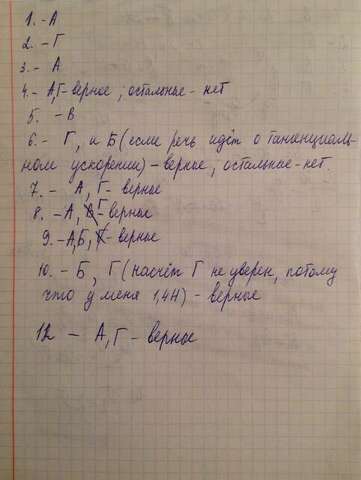 1. - А
2. - Г
3. - А
4. - А,Г - верное ; остальные - нет
5. - В
6. - Г, и Б (если речь идёт о тангенциаль-
ном ускорении) - верные ; остальные - нет.
7. - А, Г - верные
8. - А, Г - верные
9. - А,Б, - верные
10. - Б, Г (насчёт Г не уверен, потому
что у меня 1,4Н) - верные
12 - А,Г - верное